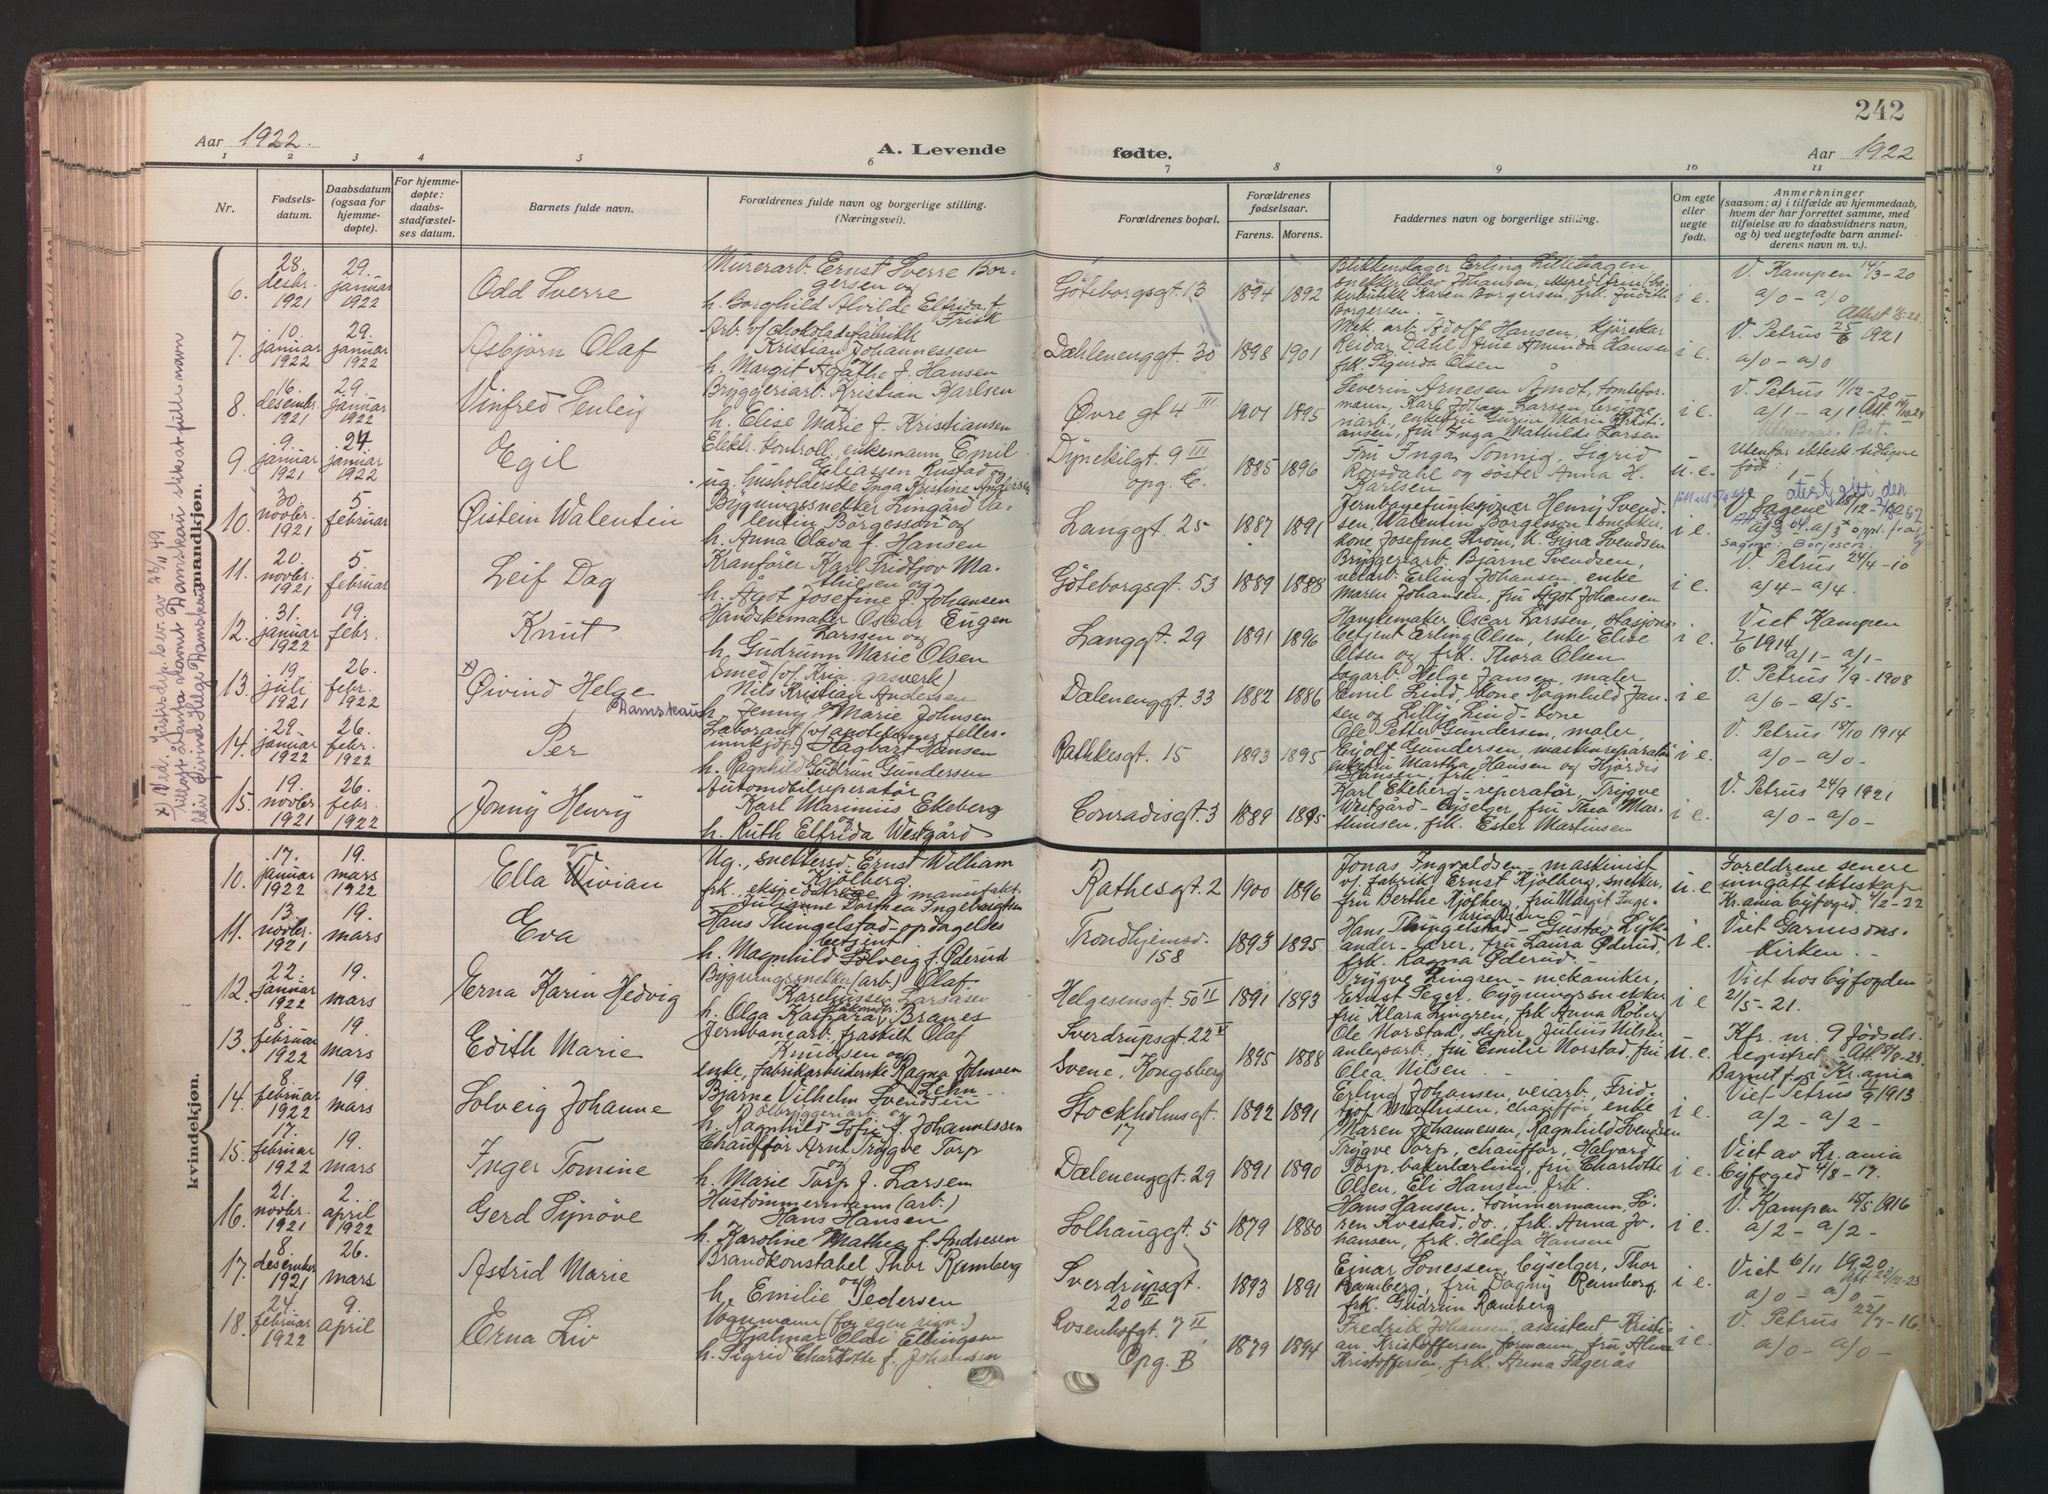 242
Aar 1922.
A. Levende
fødte.
Aar 1922
1 2 3 4 5 6 7 8 9 10 11
Nr.
Fødsels-
datum.
Daabsdatum
(ogsaa for
hjemme-
døpte).
For hjemme-
døpte:
daabs-
stadfæstel-
ses datum.
Barnets fulde navn.
Forældrenes fulde navn og borgerlige stilling.
(Næringsvei).
Forældrenes bopæl.
Forældrenes
fødselsaar.
Farens. Morens.
Faddernes navn og borgerlige stilling.
Om egte
eller
uegte
født.
Anmerkninger
(saasom: a) i tilfælde av hjemmedaab,
hvem der har forrettet samme, med
tilføielse av to daabsvidners navn,
og b) ved uegtefødte barn anmel-
derens navn m. v.).
mandkjøn.
6.
28.
desbr.
1921
29.
januar
1922
Odd Sverre
Murerarb. Ernst Sverre Bor-
gersen og
h. Borghild Alvilde Elfrida f.
Frisk
Göteborgsgt. 13
1894 1892
Blikkenslager Erling Lillehagen
snekker Olav Johansen,
Karen Borgersen, frk. Judith
Borgersen
i e.
V. Kampen 14/3-20
a/0 - a/0
7.
10.
januar
1922
29.
januar
1922
Asbjörn Olaf
Arb. v/ chokoladefabrikk
Kristian Johannessen
h. Margit Agathe f. Hansen
Dæhlenenggt. 30
1898 1901
Mek. arb. Adolf Hansen, kjörekar
Reidar Dahl, frue Aminda Hansen
frk. Sigurda Olsen
i e.
V. Petrus 25/6 1921
a/0 - a/0
8.
6.
desembr.
1921
29.
januar
1922
Vinfred Henley
Bryggeriarb. Kristian Karlsen
og
h. Elise Marie f. Kristiansen
Øvre gt 4 III
1901 1895
Severin Arnesen Amot, tomtefor-
mann, Karl Johan Larsen, brygge
riarb., enkefru Gurine Marie Kristi-
ansen, fru Inga Mathilde Larsen
i e.
V. Petrus 11/12-20-
a/1 - a/1
9.
9.
januar
1921
24
januar
1922
Egil
Elektr. kontroll., enkemann Emil
Eliassen Rustad og
ug. husholderske Inga Kristine Andersen
Dynekilgt 9 III
opg. E.
1885 1896
Fru Inga Tonnig, Sigrid
Ronsdahl og söster Anna H.
Karlsen
u. e.
Utenfor ekteskap tidligere
født:
10.
30.
novbr.
1921
5
februar
Øistein Walentin
Bygningssnekker Lingard Va-
lentin Börgesson og
h. Anna Olava f. Hansen
Langgt. 25
1887 1891
Jernbanefunksjonær Henry Svend-
sen, Walentin Börgesson, snekker,
kone Josefine Strom, h. Gina Svendsen
i e.
V. Sagene
11.
20.
novbr.
1921
5.
februar
Leif Dag
Kranförer Karl Fridtjov Ma-
thiesen og
h. Ågot Josefine f. Johansen
Göteborgsgt. 53
1889 1888
Bryggeriarb. Bjarne Svendsen,
veiarb. Erling Johansen, enke
Maren Johansen, fru Agot Johansen
i e.
V. Petrus 24/4-10
a/4 - a/4.
12.
31.
januar
1922
19.
febr.
Knut
Handskemaker Oscar Eugen
Larssen og
h. Gudrunn Marie Olsen
Langgt. 29
1891 1896
Hanskemaker Oscar Larssen, stasjons-
betjent Erling Olsen, enke Elise
Olsen og frk. Thora Olsen
i e.
Viet Kampen
7/6 1914
a/1 - a/1 -
13.
19.
juli
1921
26.
febr.
1922
x)
Øivind Helge
Damskau
Smed (v/ Kria. gasverk)
Nils Kristian Andersen
h. Jenny Marie Johnsen
Dælenenggt. 33
1882 1886
Sagarb. Helge Jansen, maler
Emil Lind, kone Ragnhild Jan-
sen og Lilly Lind - kone
i e
V. Petrus 5/9-1908
a/6 - a/5-
14.
29.
januar
1922
26.
febr.
1922
Per
Laborant (v/ apotekernes felles-
innkjöp) Hagbart Hansen
h. Ragnhild Gudrun Gundersen
Rathkesgt. 15
1893 1895
Ole Petter Gundersen, maler,
Eyolf Gundersen, maskinreparatör
enkefru Martha Hansen og Hjördis
Hansen, frk. -
i e.
V. Petrus 18/10 1914
a/0 - a/0-
15.
19.
novbr.
1921
26.
febr.
1922
Jonny Henry
Automobilreperatør
Karl Marinius Ekeberg
og
h. Ruth Elfrida Westgård
Conradisgt. 3
1889 1895
Karl Ekeberg - reperatør, Trygve
Westgård - byselger, fru Thea Mar-
thinsen, frk. Ester Martinsen
i e.
V. Petrus 24/9 1921
a/0 - a/0-
kvindekjøn.
10.
17.
januar
1922
19.
mars
1922
Ella Wivian
Ug., snekkersv. Ernst Wilham
Kjölberg,
frk. ekspeditrise i manufakt.
Julianne Dorthea Ingebrigtsen
Rathesgt. 2
1900 1896
Jonas Ingvaldsen - maskinist
v/ fabrik, Ernst Kjölberg, snekker,
fru Berthe Kjölberg, fru Margit Inge-
brigtsen
u. e
Foreldrene senere
inngått ekteskap
Kr.ania byfoged 11/2-22
11.
13.
novbr.
1921
19.
mars
Eva
Hans Thingelstad - opdagelses
betjent
h. Magnhild Solveig f. Øderud
Trondhjemsv.
158
1893 1895
Hans Thingelstad - Gustav Lyk-
ander - lærer, fru Laura Øderud,
frk. Ragna Øderud -
i e.
Viet Garnisons-
kirken -
12.
22.
januar
1922
19.
mars
Erna Karin Hedvig
Bygningssnekker (arb.) Olaf
Kareliussen Larsåsen
h. Olga Kaspara Branes
Helgesensgt. 50 II
1891 1893
Trygve Lingren - mekaniker,
Ernst Seger, bygningssnekker
fru Klara Lingren, frk Anna Roberg
i e
Viet hos byfogden
21/5-21.
13.
8
februar
1922
19.
mars
Edith Marie
Jernbanearb., fraskilt Olaf
Knudsen og
enke, fabrikarbeiderske Ragna Johnsen
Lehn
Sverdrupsgt 22 V
Svene, Kongsberg
1895 1888
Ole Norstad, sliper, Julius Nilsen
anlegsarb., fru Emilie Norstad, fru
Olea Nilsen
u. e.
Kfr. nr. 9 fødsels-
registret -
Barnet f. i Kr.ania
14.
8
februar
1922
19.
mars
Solveig Johanne
Bjarne Vilhelm Svendsen
Ölbryggeriarb. og
h. Ragnhild Sofie f. Johannessen
Stockholmsgt.
17
1892 1891
Erling Johansen, veiarb., Frid-
tjof Mathisen, chauffør, enke
Maren Johannessen, Ragnhild Svendsen
i e.
Viet Petrus 9/11 1913
a/2 - a/2 -
15.
17.
februar
1922
19.
mars
Inger Tomine
Chauffør Arnt Trygve Torp
og
h. Marie Torp f. Larsen
Dælenenggt. 29
1891 1890
Trygve Torp, chauffør, Halvard
Torp, bakerlærling, fru Charlotte
Olsen, Eli Hansen, frk.
i e.
Viet av Kr.ania
Byfoged 4/8-17.
16.
21.
novbr.
1921
2.
april
1922
Gerd Synöve
Hustömmermann (arb.)
Hans Hansen
h. Karoline Mathea f. Andresen
Solhauggt. 5
1879 1880
Hans Hansen, tömmermann, Sö-
ren Kvestad, do., frk. Anna Jo-
hansen, frk. Helga Hansen
i e.
V. Kampen 15/5 1916
a/2 - a/2 -
17.
8.
desember
1921
26.
mars
Astrid Marie
Brandkonstabel Thor Ramberg
og
h. Emilie Pedersen
Sverdrupsgt.
20 II
1893 1891
Einar Jonessen, byselger, Thor
Ramberg, fru Dagny Ramberg,
frk. Gudrun Ramberg
i e.
Viet 6/11 1920
a/0 - a/0 -
18.
24.
februar
1922
9.
april
Erna Liv
Vognmann (for egen regn.)
Hjalmar Olai Ellingsen
og
h. Sigrid Charlotte f. Johansen
Rosenhofgt. 7 II
Opg. B
1879 1894
Fredrik Johansen, assistent - Kristi-
an Kristoffersen, formann, fru Alma
Kristoffersen, frk. Anna Fageras
i e.
V. Petrus 22/7-16
a/0 - a/0 -